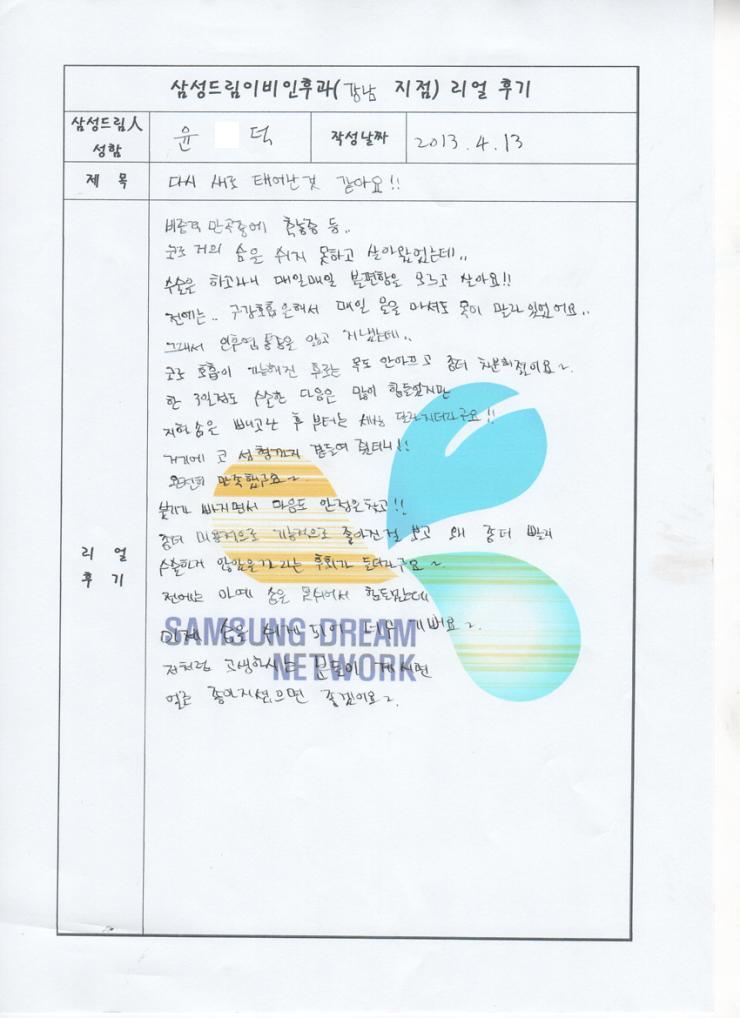 삼성드림이비인후과(강남 지점) 리얼 후기
삼성드림人 성함
윤 덕
작성날짜
2013.4.13
제 목
다시 새로 태어난것 같아요!!
리 얼 후 기
비중격 만곡증에 축농증 등..
코로 거의 숨은 쉬지 못하고 살아왔었는데..
수술은 하고나니 매일매일 불편함을 모르고 살아요!!
전에는.. 구강호흡은해서 매일 물을 마셔도 목이 말라있었어요..
그래서 인후염, 통증을 안고 지냈는데..
코로 호흡이 가능해진 후로는 목도 안아프고 좀더 차분해졌어요~
한 3일정도 수술한 다음은 많이 힘들었지만
지혈솜은 빼고난 후 부터는 세상 달라지더라구요!!
거기에 코 성형까지 곁들여 줬더니!!
완전히 만족했구요~
붓기가 빠지면서 마음도 안정은찾고!!
좀더 미용적으로 기능적으로 좋아진걸 보고 왜 좀더 빨리
수술하지 않았을까라는 후회가 들더라구요~
전에는 아예 숨은 못쉬어서 힘들었는데
이제 숨을 쉬게 되어 너무 기뻐요~
저처럼 고생하시는 분들이 계시면
얼른 좋아지셨으면 좋겠어요~
SAMSUNG DREAM
NETWORK